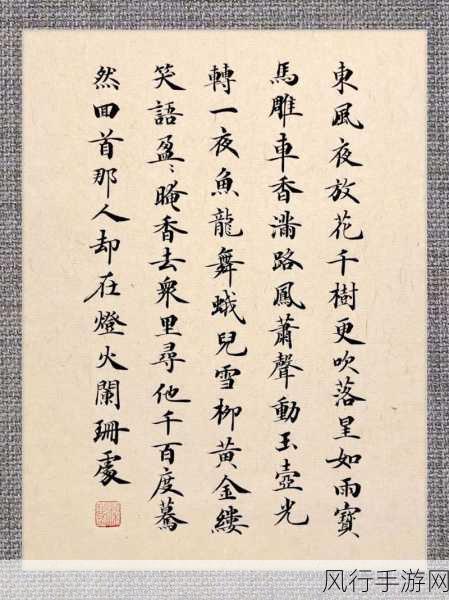 東風夜放花千樹更吹落星如雨寳
馬雕車香滿路鳳蕭聲動玉壺光
轉一夜魚龍舞蛾兒雪柳黃金縷
笑語盈〻晻香去衆里尋他千百度驀
然回首那人却在燈火闌珊處
风行手游网